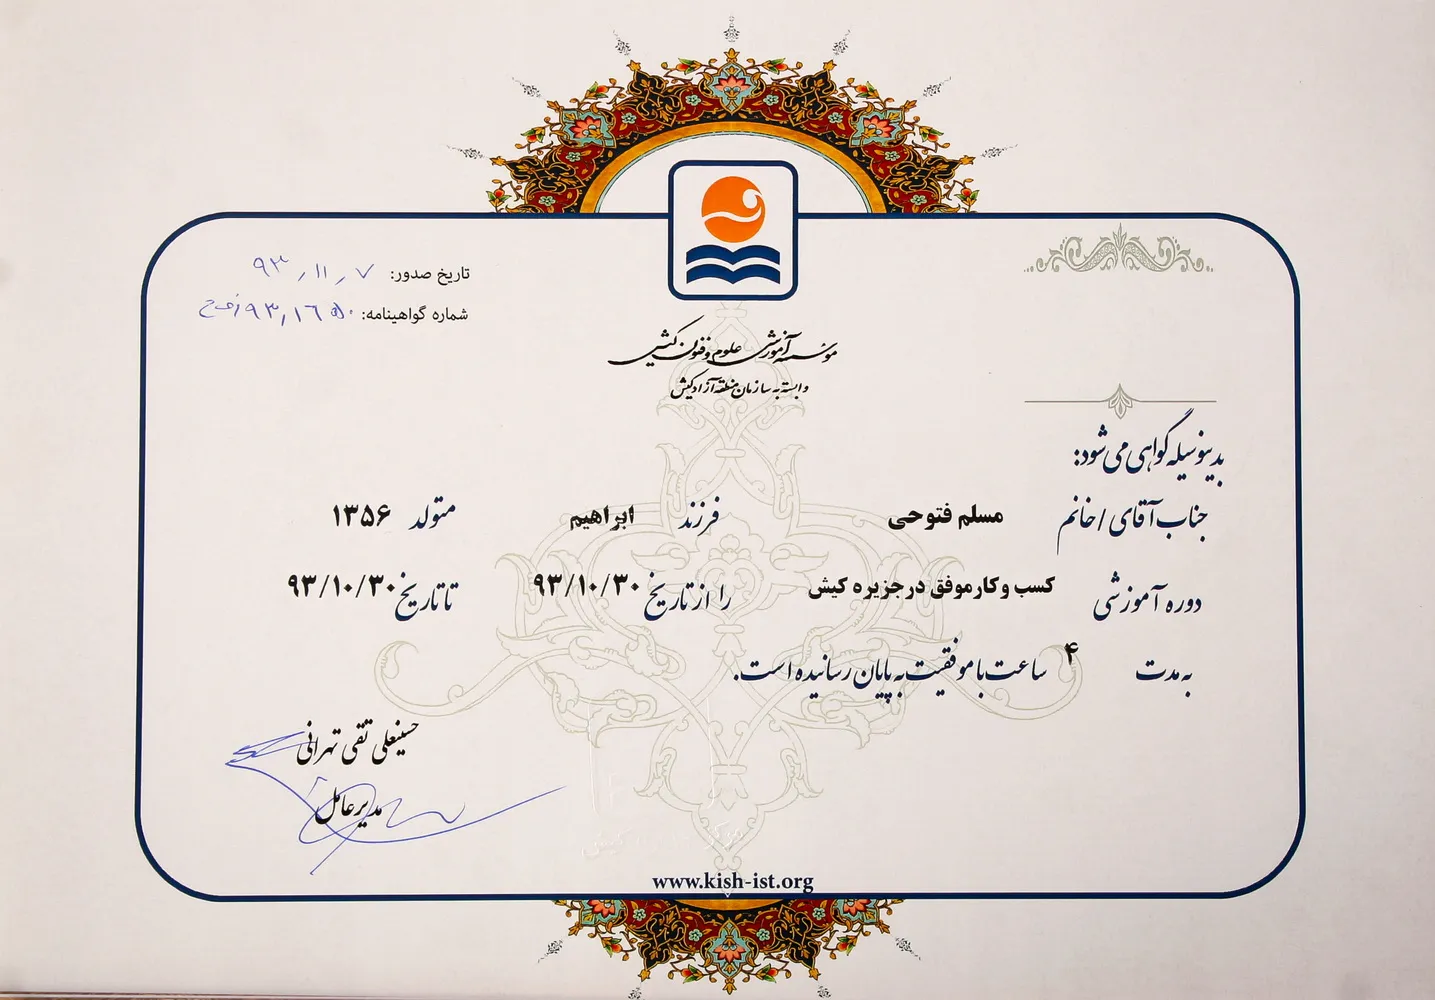 تاریخ صدور: ۹۳/۱۱/۷
شماره گواهینامه:
موسسه آموزشی علوم و فنون کیش
وابسته به سازمان منطقه آزاد کیش
بدینوسیله گواهی می شود:
جناب آقای / خانم مسلم فتوحی فرزند ابراهیم متولد ۱۳۵۶
دوره آموزشی کسب و کار موفق در جزیره کیش را از تاریخ ۹۳/۱۰/۳۰ تا تاریخ ۹۳/۱۰/۳۰
به مدت ۴ ساعت با موفقیت به پایان رسانیده است.
حسینعلی تقی تهرانی
مدیرعامل
www.kish-ist.org